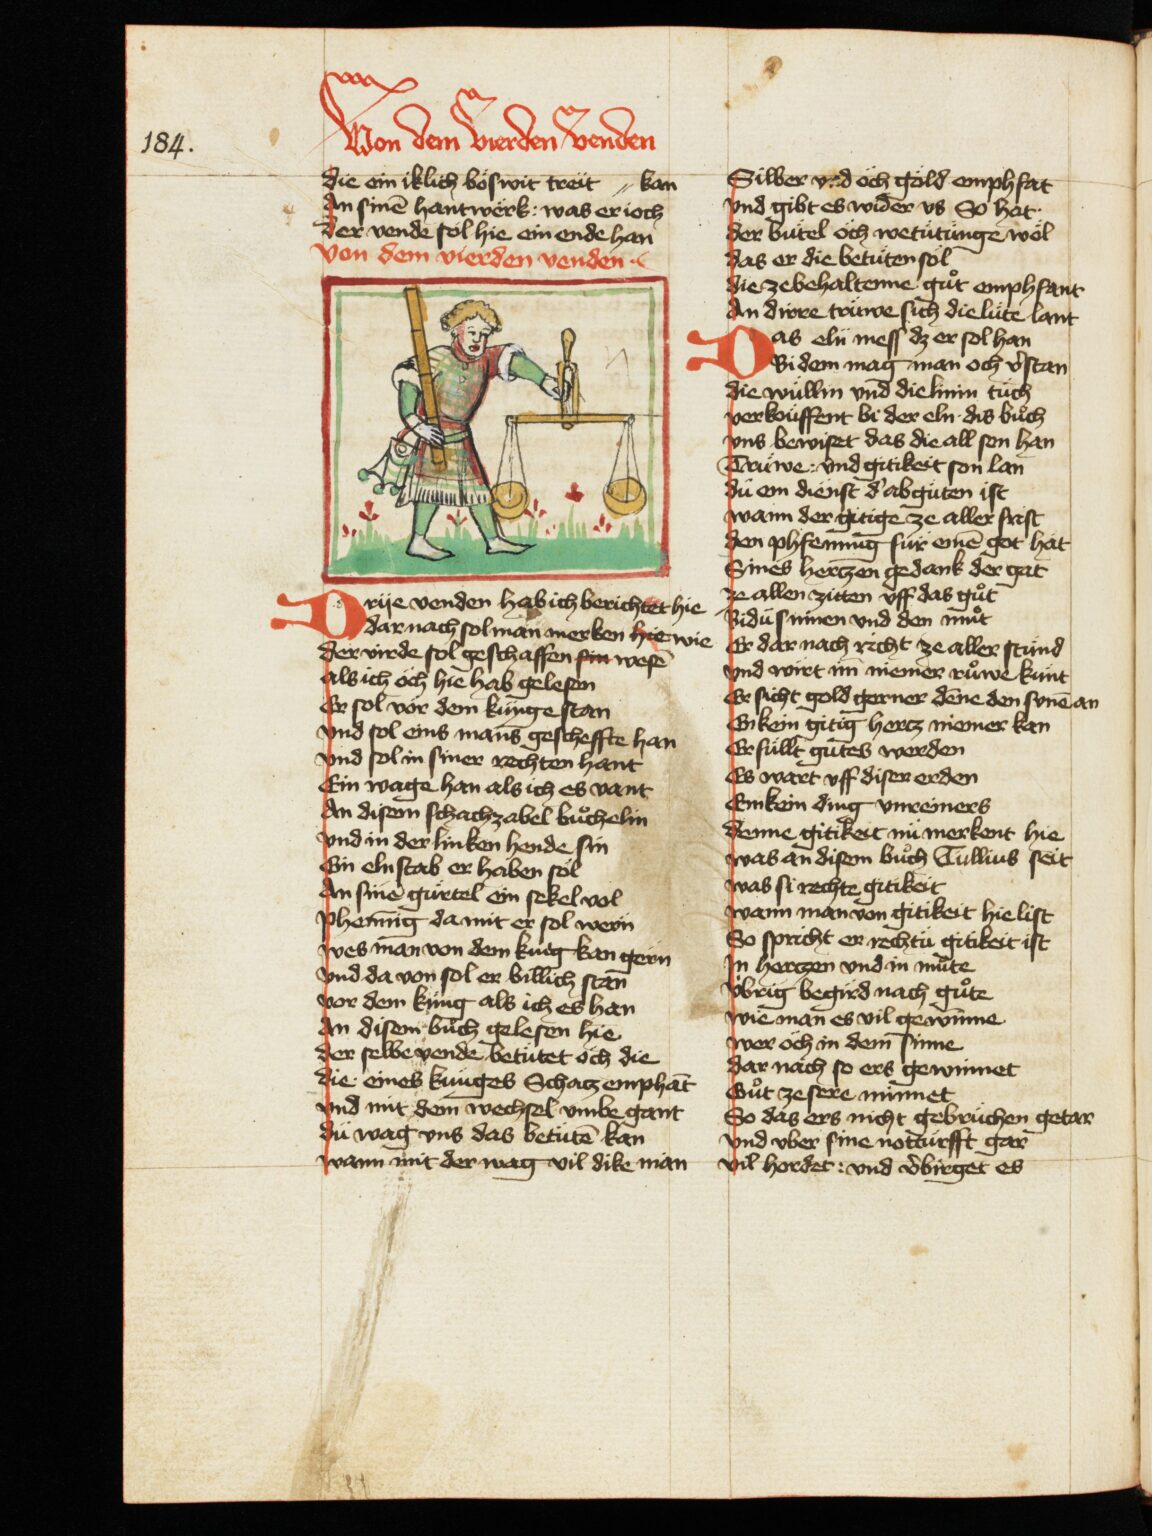 184.
Von dem vierden venden
die ein iklich böswit treit // kan
An sinē hantwerk : was er ioch
Der vende sol hie ein ende han
Von dem vierden venden
Drije venden hab ich berichtet hie
dar nach sol man merken hie wie
der virde sol geschaffen sin wesē
als ich öch hie hab gelesen
Er sol vor dem kunge stan
vnd sol eins mans gescheffte han
vnd sol in siner rechten hant
Ein wage han als ich es vant
An disem schachzabel bůchelin
vnd in der linken hende sin
Ein elnstab er haben sol
An sinē gurtel ein sekel vol
phenning da mit er sol wern
wes man von dem kung kan gern
vnd da von sol er billich stan
vor dem kung als ich es han
An disem bůch gelesen hie
der selbe vende betutet öch die
die eines kunges Schatz emphāt
vnd mit dem wechsel vmbe gant
du wag vns das betutē kan
wann mit der wag vil dike man
Silber vnd öch gold emphfat
vnd gibt es wider vs So hat
der butel öch wetutunge wol
das er die betuten sol
die ze behaltenne gůt emphfant
An dirre truwe sich die lute lant
Das eln mess dz er sol han
Bi dem mag man och v̄stan
die wullin vnd die linin tuch
verkouffent bi der eln dis bůch
vns bewiset das die all son han
Truwe : vnd gitikeit son lan
du ein dienst d' abguten ist
wann der gitige ze aller frist
den phfenning fur einē got hat
Sines hertzen gedank der gat
ze allen ziten vff das gůt
Bidu sinnen vnd den můt
Er dar nach richt ze aller stund
vnd wirt im niemer růwe kunt
Er sicht gold gerner dēne den sunē an
Enkein gitig hertz niemer kan
Erfullt gutes werden
Es wart vff diser erden
Enkein ding vnreiners
denne gitikeit nu merkent hie
was an disem bůch Tullius seit
was si rechte gitikeit
wann man von gitikeit hie list
So spricht er rechtu gitikeit ist
In hertzen vnd in můte
vbrig begird nach gůte
wie man es vil gewinne
wer öch in dem sinne
dar nach so ers gewinnet
Gůt ze sere minnet
So das ers nicht gebruchen getar
vnd vber sine notturfft gar
vil hordet : vnd v̄birget es